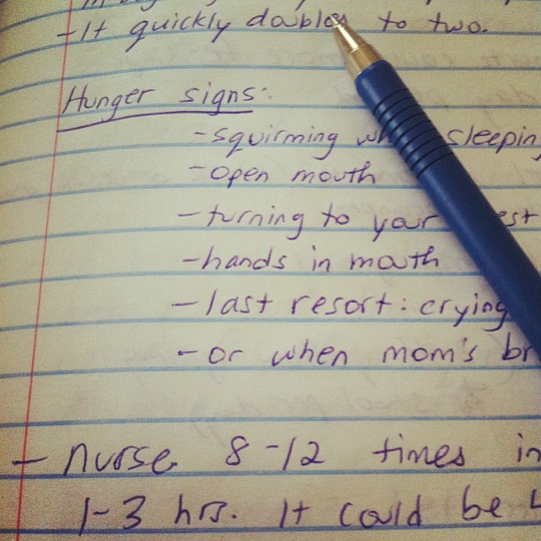 -It quickly doubles to two.
Hunger signs:
-squirming sleeping
-open mouth
-turning to your
-hands in mouth
-last resort: crying
-or when mom's
- nurse 8-12 times in
1-3 hrs. It could be